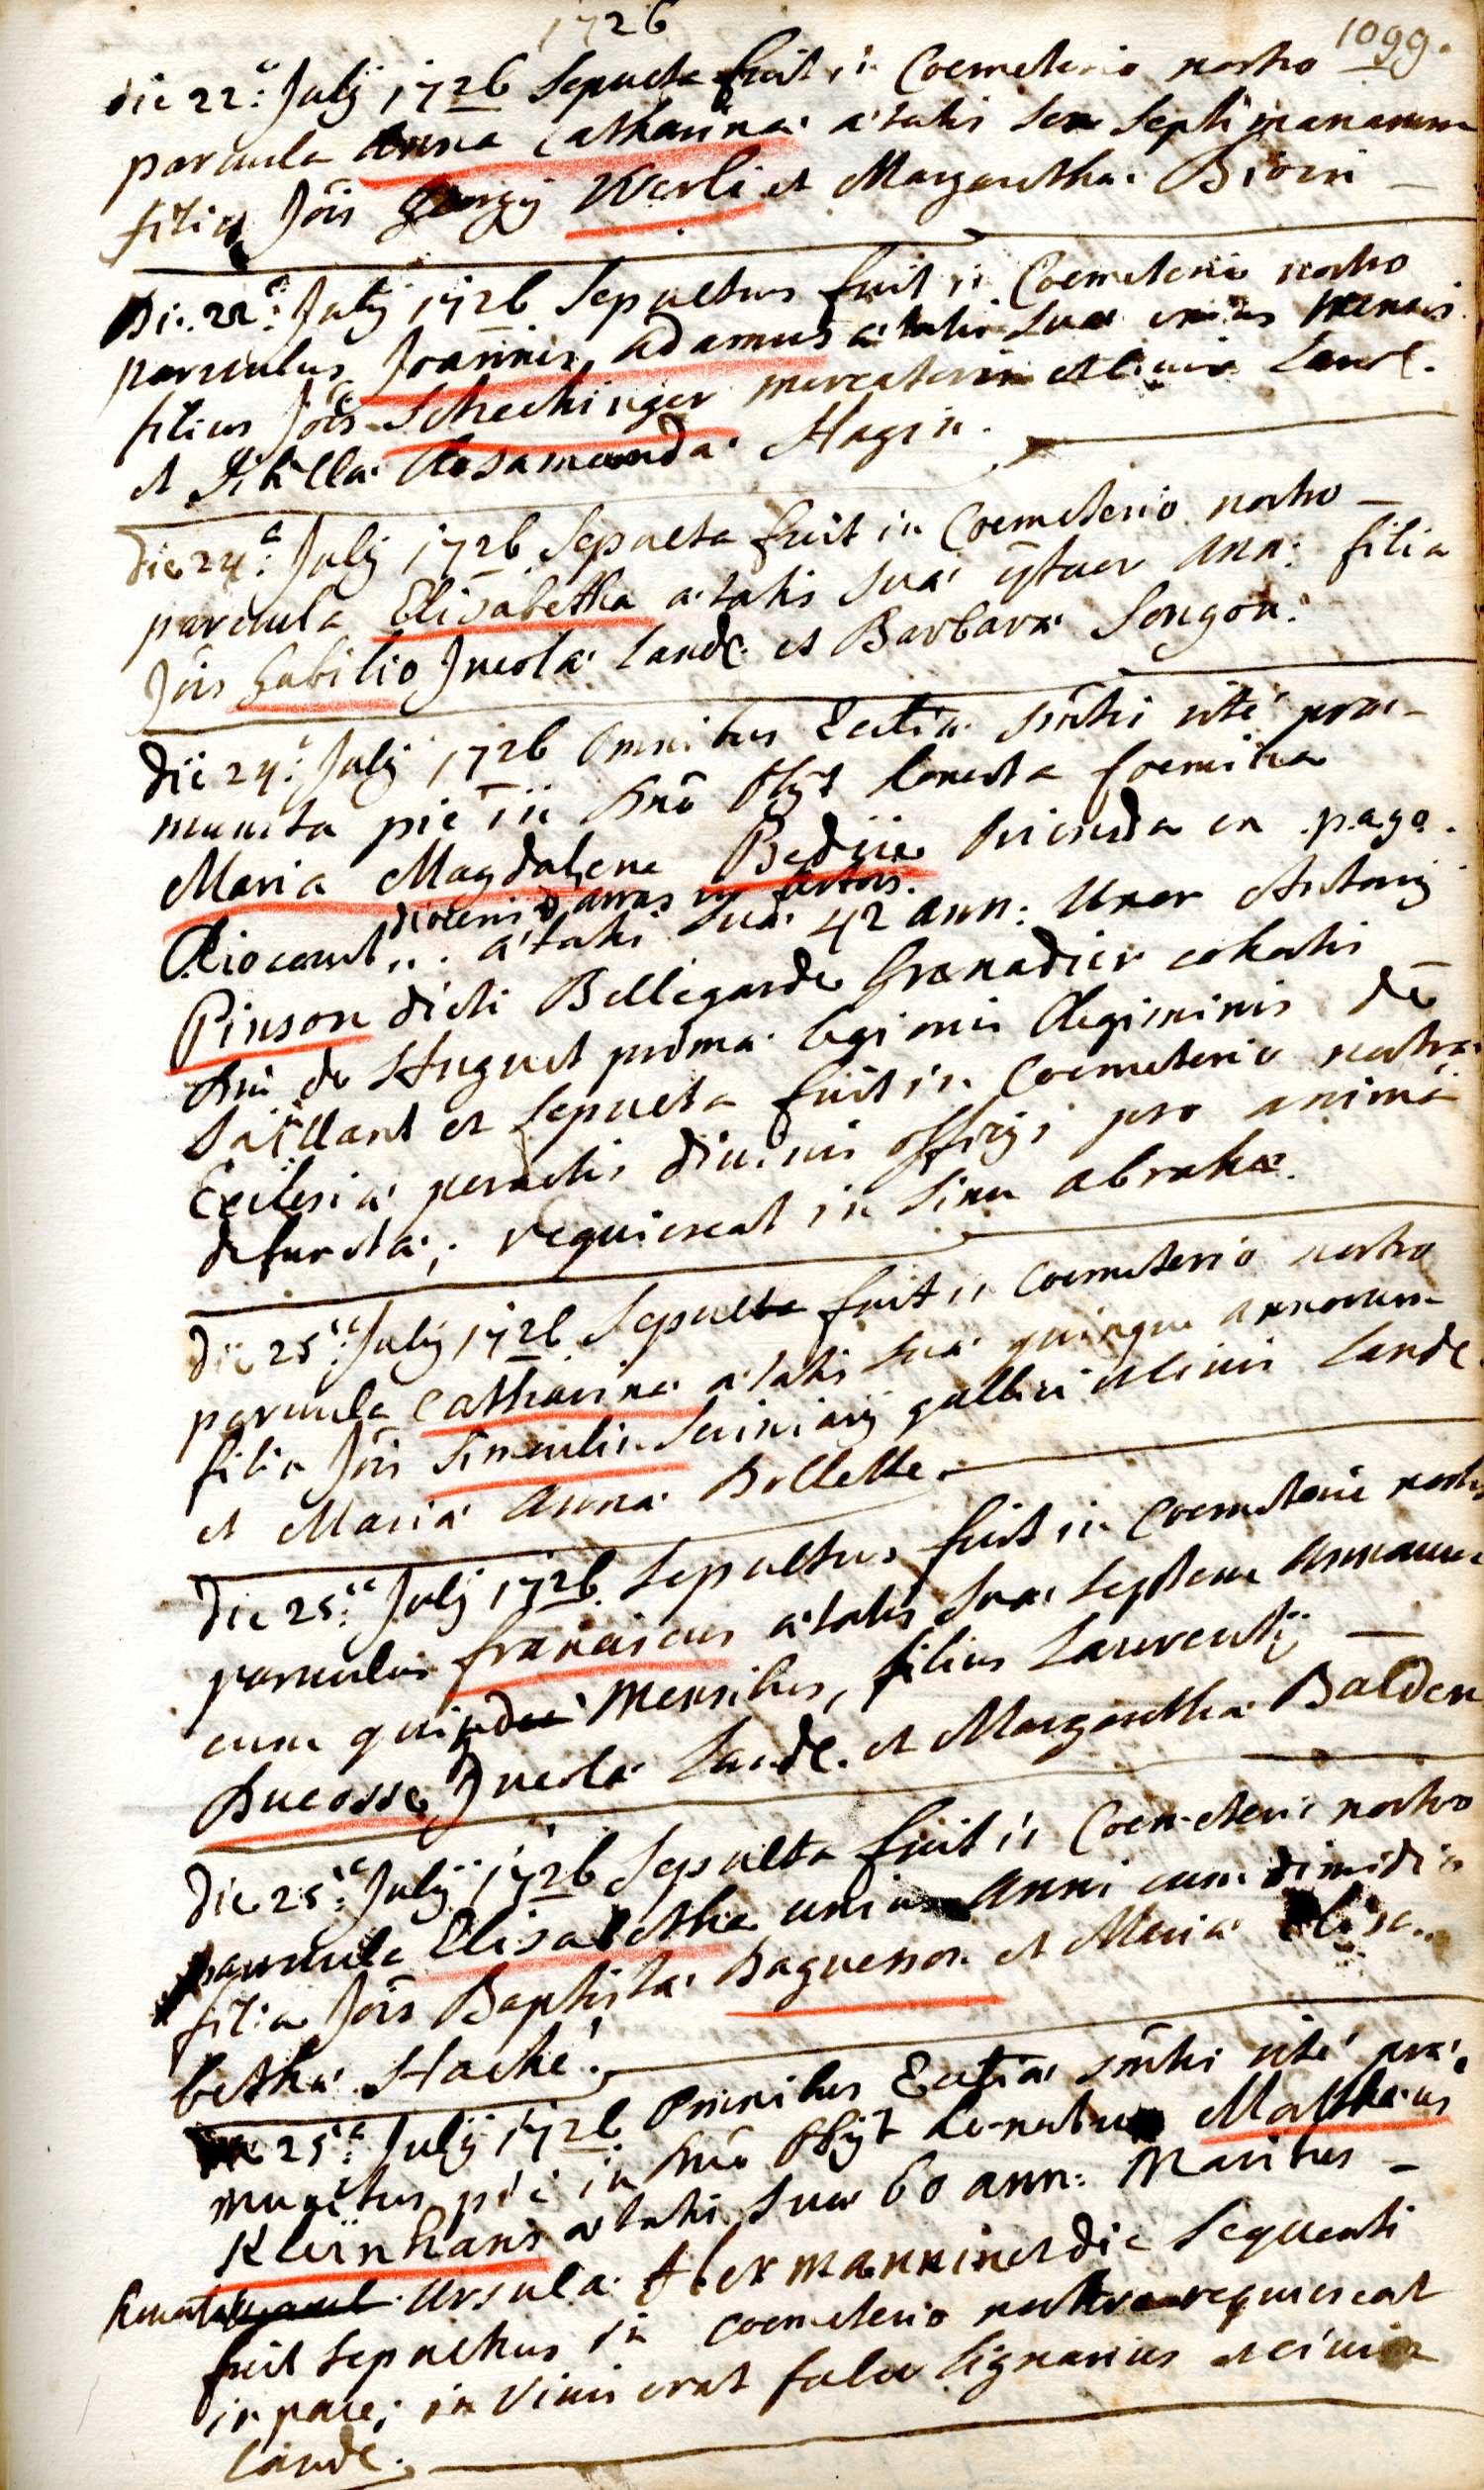 1726
1099.
die 22.a July 1726 Sepulta fuit in Coemeterio nostro
parvula Anna Catharina ætatis sex septimanarum
filia Jôis Georgij Werli et Margaretha
Die 22.a July 1726 Sepultus fuit in Coemeterio nostro
parvulus Joannis adamus ætatis suæ unius mensis
filius Jôis Schechinger mercatoris et civis Land.
et Sibilla Rosamunda Hagin.
Die 24.a July 1726 Sepulta fuit in Coemeterio nostro
parvula Elisabetha ætatis suæ Ann: filia
Jôis Gabilio Incolæ Land. et Barbaræ Songon.
Die 24.a July 1726 Omnibus Eccliæ sm̃tis rité præ-
munita pie in Dnõ obijt honesta foemina
Maria Magdalena oriunda ex pago
diocenis arras in artois.
ætatis suæ 42 ann: Uxor Antonij
Pinson dicti Bellegarde Granadier cohortis
Dni de Huguet primæ legionis Regiminis de
Saillant et sepulta fuit in Coemeterio nostræ
Ecclesiæ peractis divinis officijs pro anima
defuncta; requiescat in sinu abrahæ.
Die 25.a July 1726 Sepulta fuit in Coemeterio nostro
parvula Catharina ætatis suæ quinque annorum
filia Jôis Simeulin Sciniarij gallici et civis Land.
et Maria Anna Bollette.
Die 25.a July 1726 Sepultus fuit in Coemeterio nostro
parvulus franciscus ætatis suæ septem annorum
cum quindeci mensibus, filius Laurentij
Ducosse Incola Land. et Margaretha Balden
Die 25.a July 1726 Sepulta fuit in Coemeterio nostro
parvula Elisabetha unius anni cum dimidio
filia Jôis Baptista Daguesson et Maria Elisa-
betha Haché.
Die 25.a July 1726 Omnibus Eccliæ sm̃tis rité præ-
munitus pié in Dnõ obijt honestus Mathæus
Kleinhans ætatis suæ 60 ann: Maritus
Ursula et die sequenti
fuit sepultus in coemeterio nostro requiescat
in pace; in vivis erat faber lignarius et civis
Land.